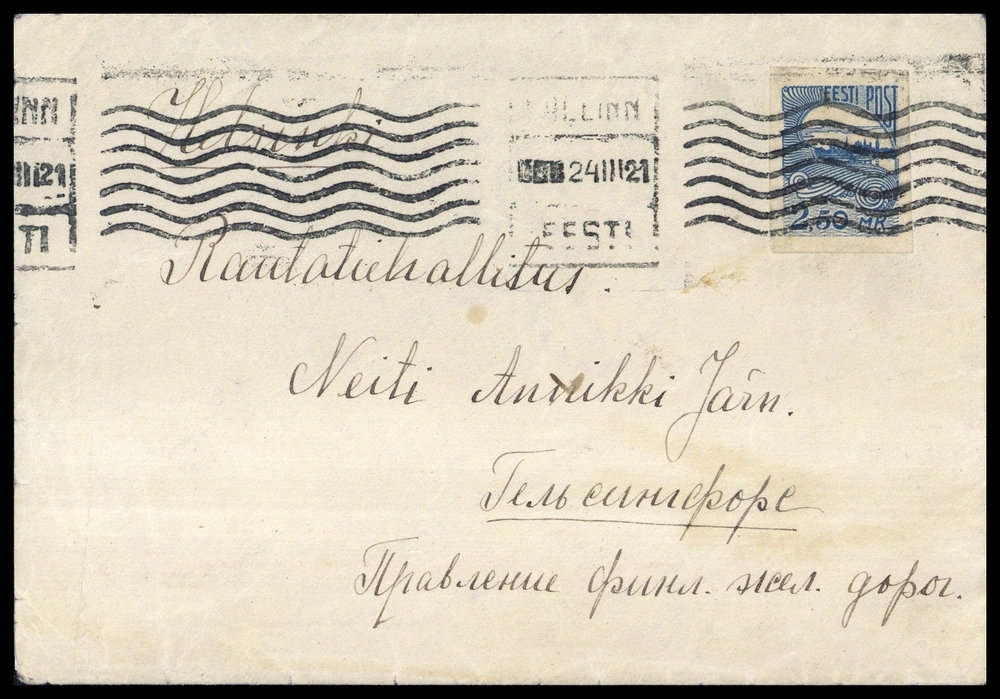 INN
III21
TI
TALLINN
24III21
EESTI
EESTI POST
2,50 MK.
Helsinki
Rautatiehallitus.
Neiti Annikki Järn.
Гельсингфорс
Правление финл. жел. дорог.